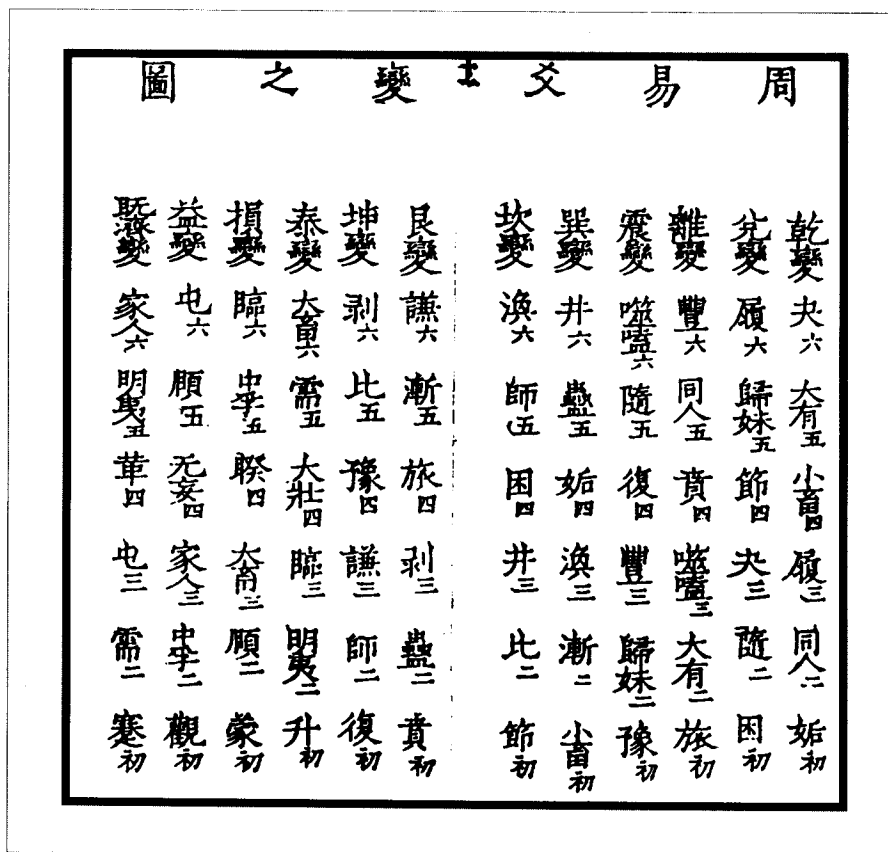 周易爻變之圖
乾變夬六大有五小畜四履三同人二姤初
兌變履六歸妹五節四夬三隨二困初
離變豐六同人五賁四噬嗑三大有二旅初
震變噬嗑六隨五復四豐三歸妹二豫初
巽變井六蠱五姤四渙三漸二小畜初
坎變渙六師五困四井三比二節初
艮變謙六漸五旅四剥三蠱二賁初
坤變剥六比五豫四謙三師二復初
泰變大畜六需五大壯四臨三明夷二升初
損變臨六中孚五睽四大畜三頤二蒙初
益變屯六頤五无妄四家人三中孚二觀初
既濟變家人六明夷五革四屯三需二蹇初